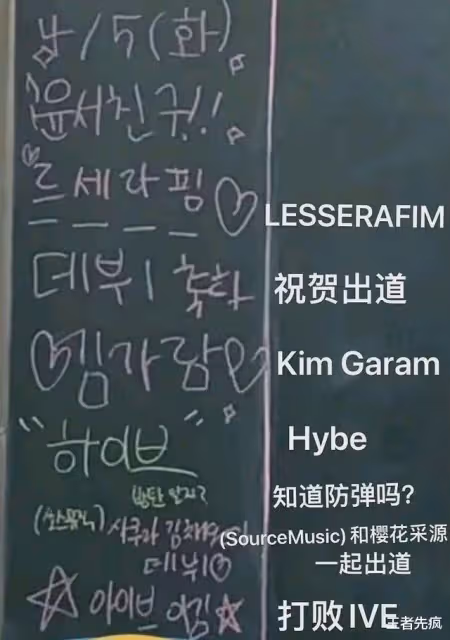 4/5(화)
윤서친구!!
♡르세라핌♡ LESSERAFIM
데뷔 축하 祝贺出道
♡김가람♡ Kim Garam
"하이브" Hybe
방탄 알지? 知道防弹吗?
(쏘스뮤직) 사쿠라 김채원이 (SourceMusic) 和樱花采源
데뷔♡ 一起出道
☆아이브 이김☆ 打败IVE
者先疯